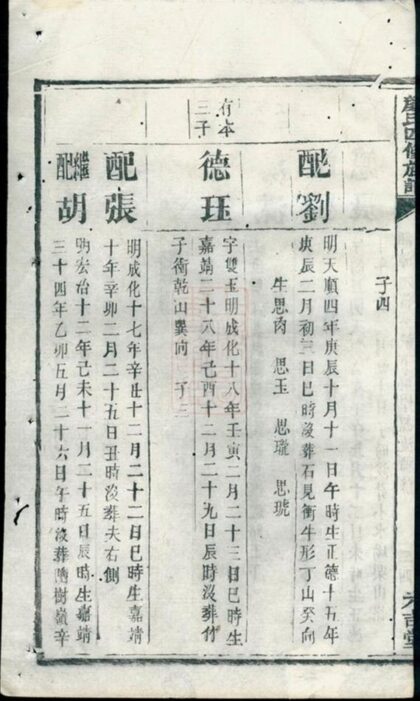 子四
配劉
明天順四年庚辰十月十一日午時生正德十五年
庚辰二月初三日巳時沒葬石見衝牛形丁山癸向
生思𠕇 思玉 思瓏 思琥
有本
三子
德珏
字雙玉明成化十八年壬寅二月二十三日巳時生
嘉靖二十八年己酉十二月二十九日辰時沒葬竹
子衝乾山巽向 子三
配張
明成化十七年辛丑十二月二十二日巳時生嘉靖
十年辛卯二月二十五日丑時沒葬夫右側
繼配胡
明宏治十二年己未十一月二十五日辰時生嘉靖
三十四年乙卯五月二十六日午時沒葬 樹嶺辛